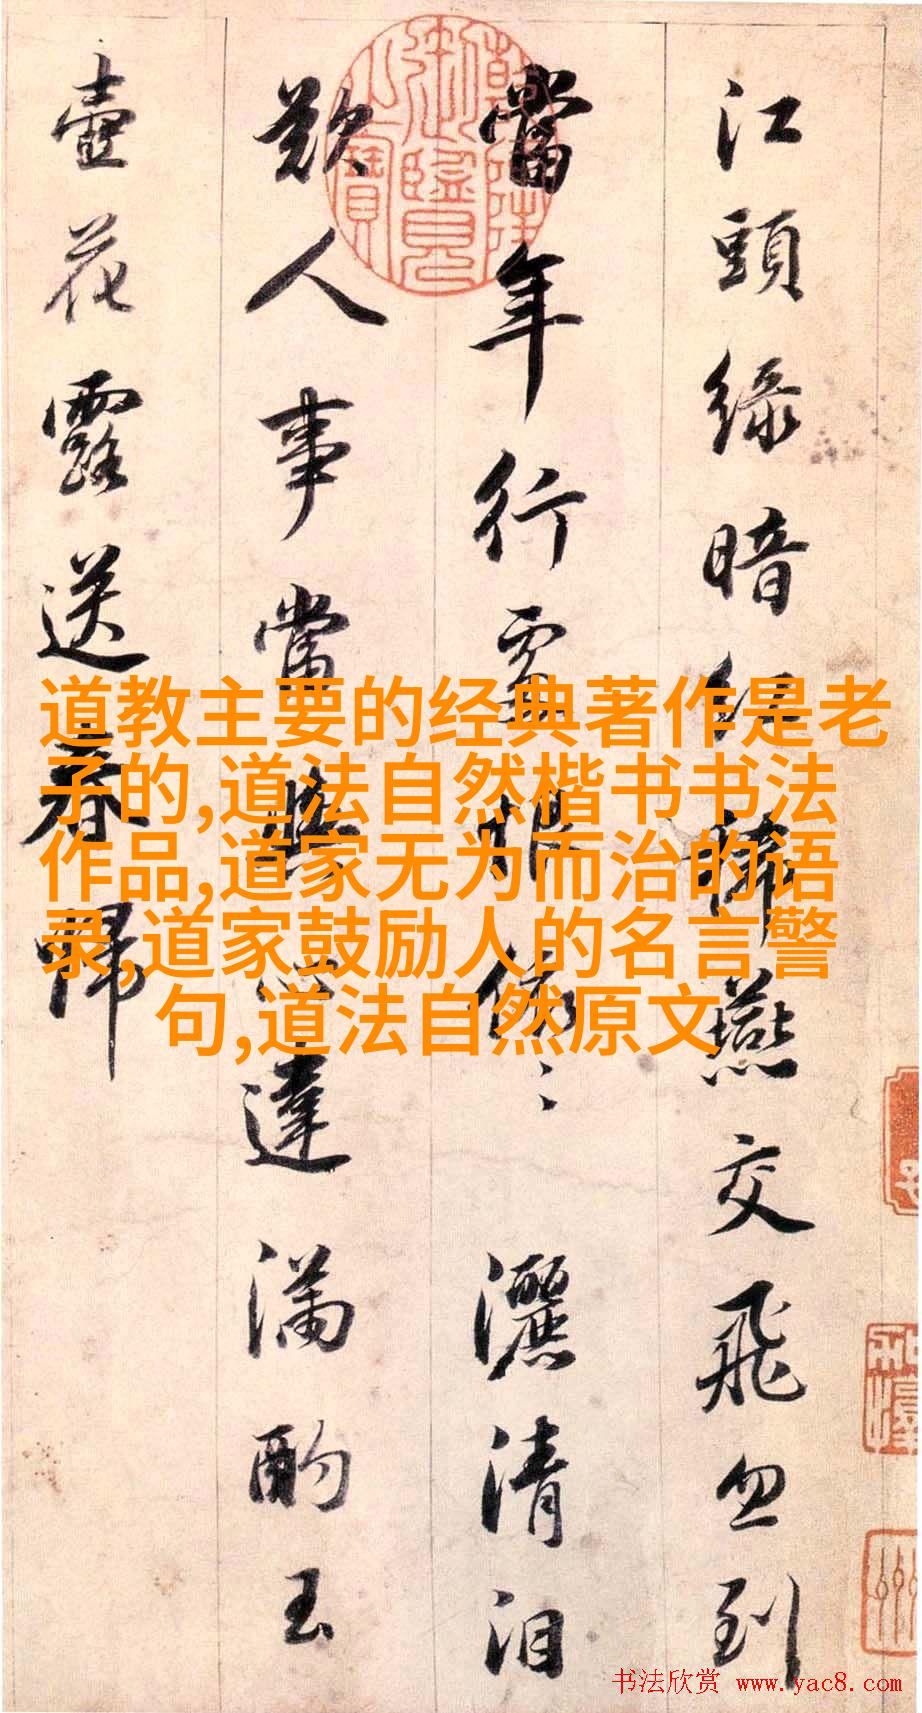 江頭綠暗紅稀燕交飛忽到
當年行處恨依〻灑清泪
歎人事常心達滿酌玉
壺花露送春歸
乾隆御覽之寶
道教主要的经典著作是老
子的,道法自然楷书书法
作品,道家无为而治的语
录,道家鼓励人的名言警
句,道法自然原文
书法欣赏 www.yac8.com